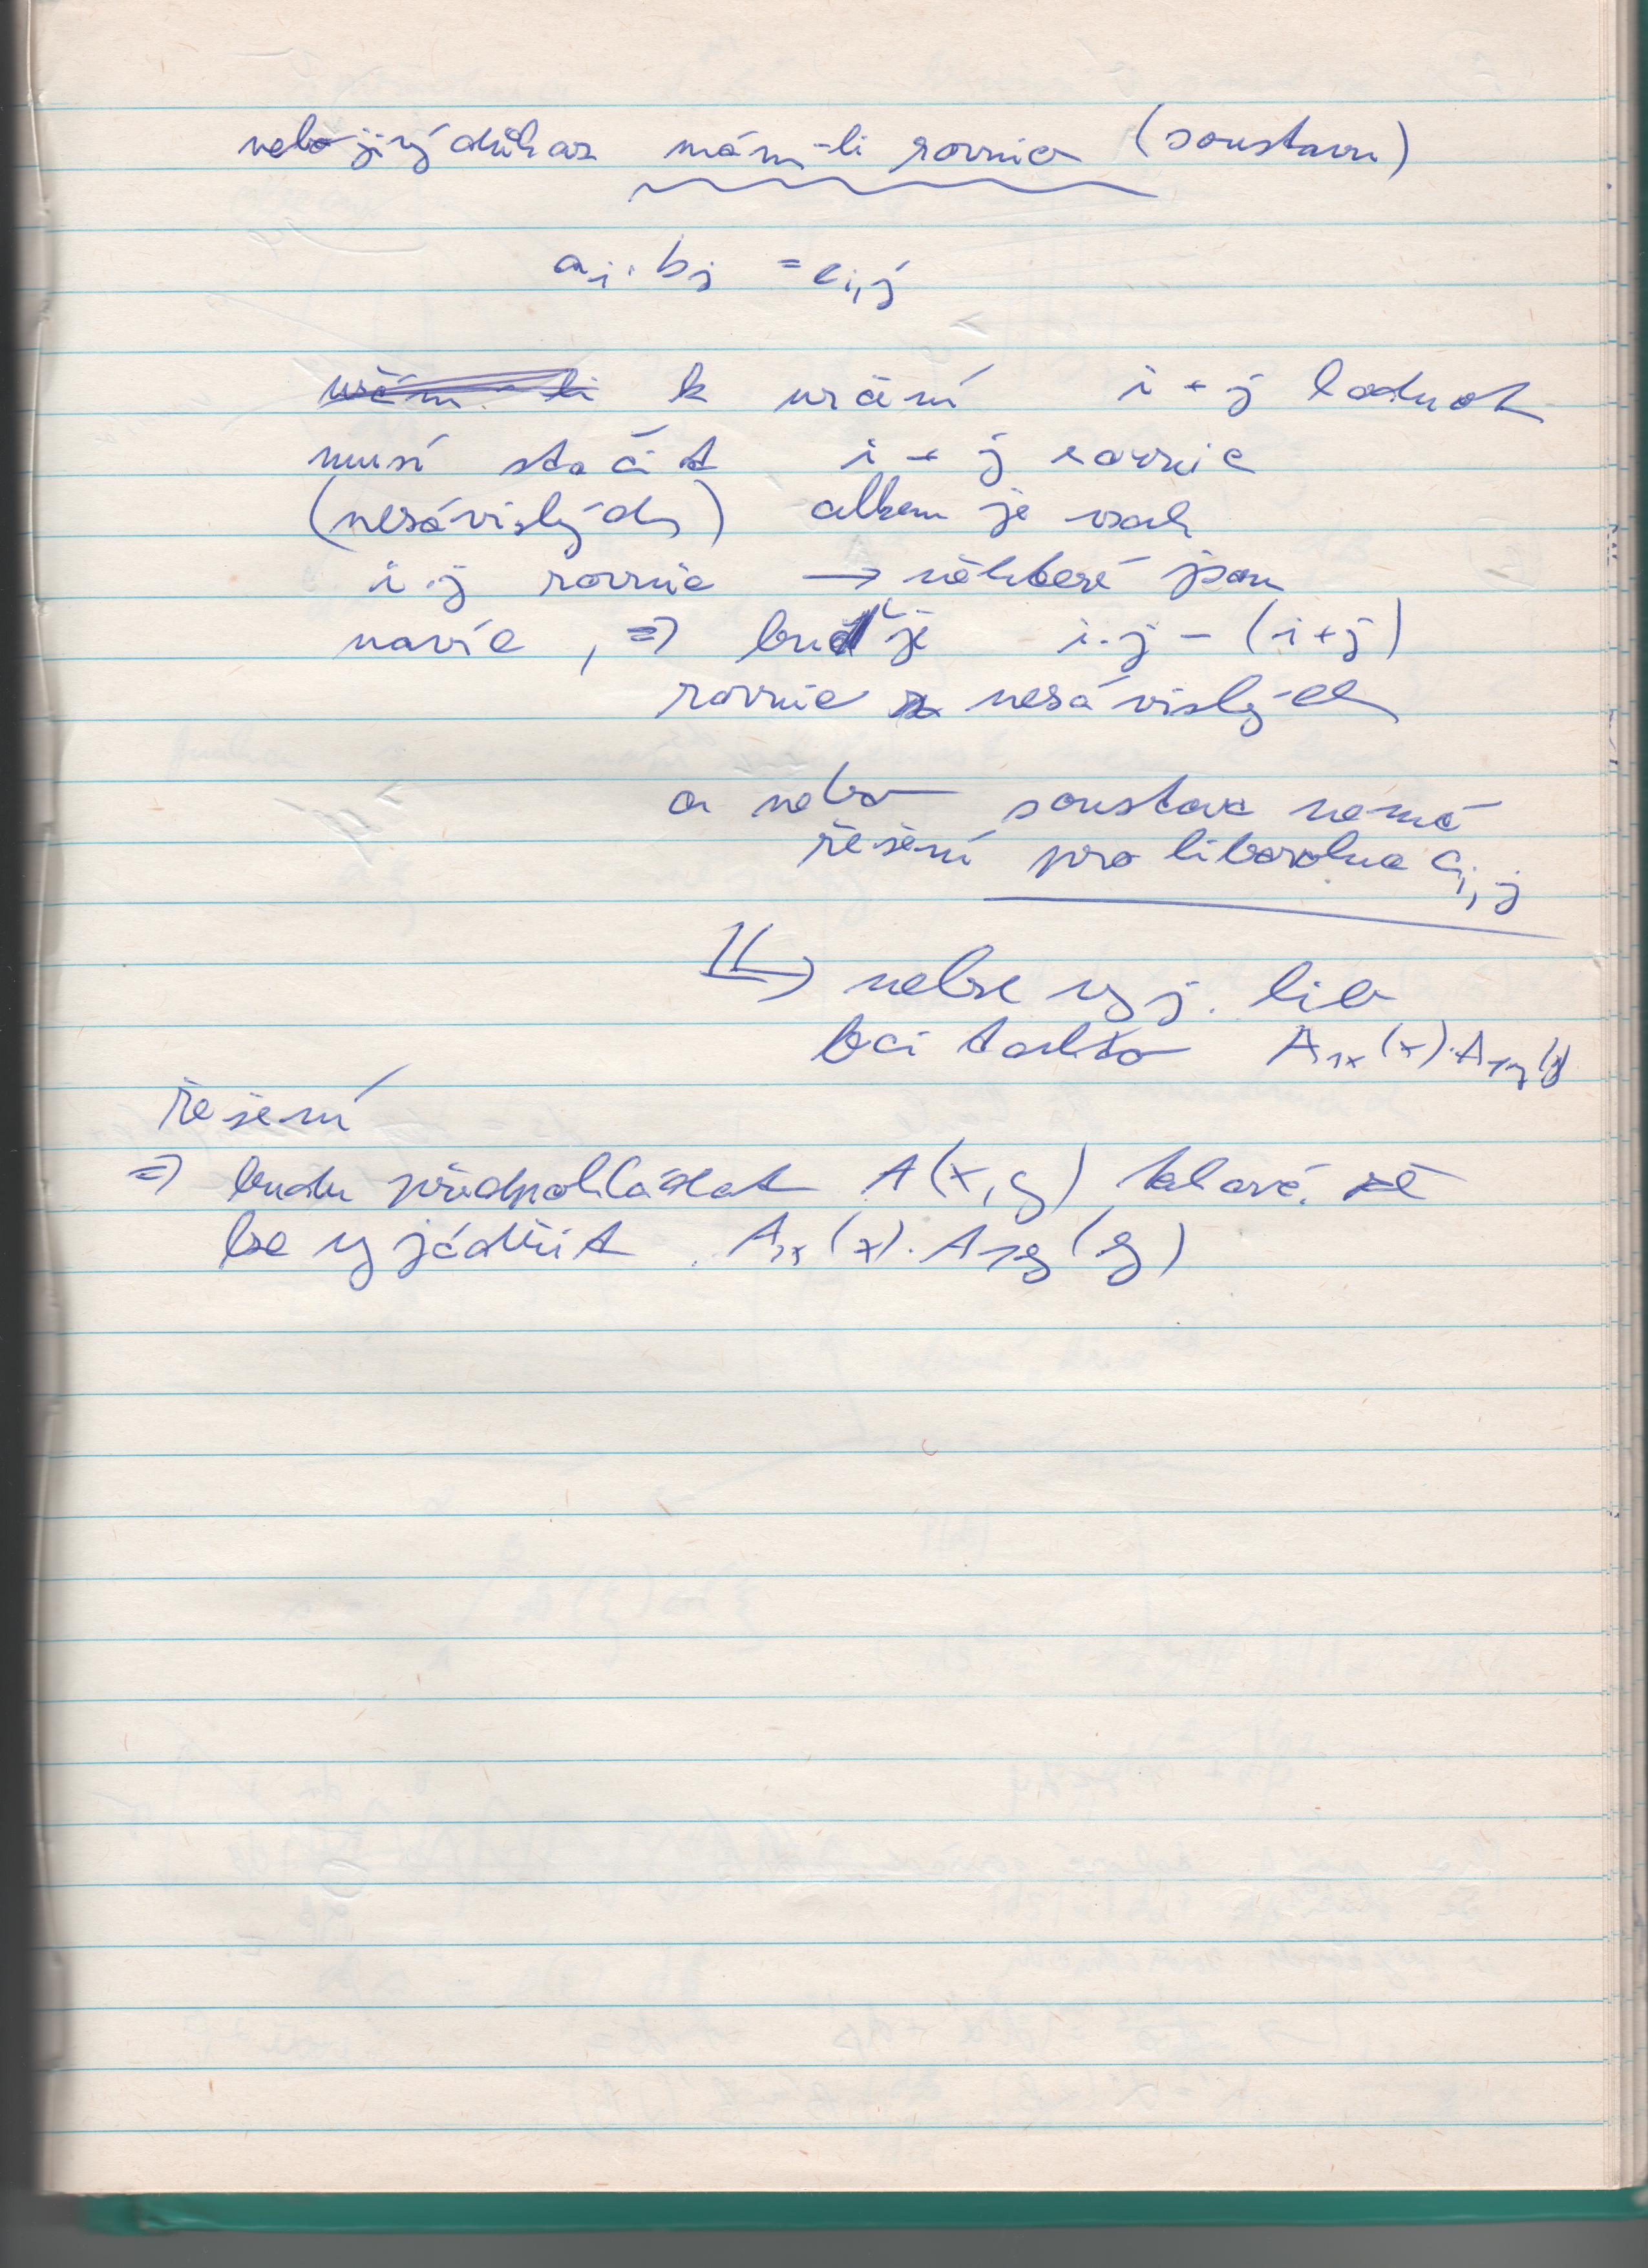 nebo jiný důkaz mám-li rovnic (soustavu)
a_i . b_j = c_i,j
k určení i + j hodnot
musí stačit i + j rovnic
(nezávislých) ale je však
i.j rovnic → některé jsou
navíc , ⇒ buď je i.j - (i+j)
rovnic nezávislých
a nebo soustava nemá
řešení pro libovolna c_i,j
nelze vyj. lib
fci takto A_1x(x).A_1y(y)
řešení
⇒ budu předpokládat A(x,y) takové. že
lze vyjádřit A_1x(x).A_1y(y)